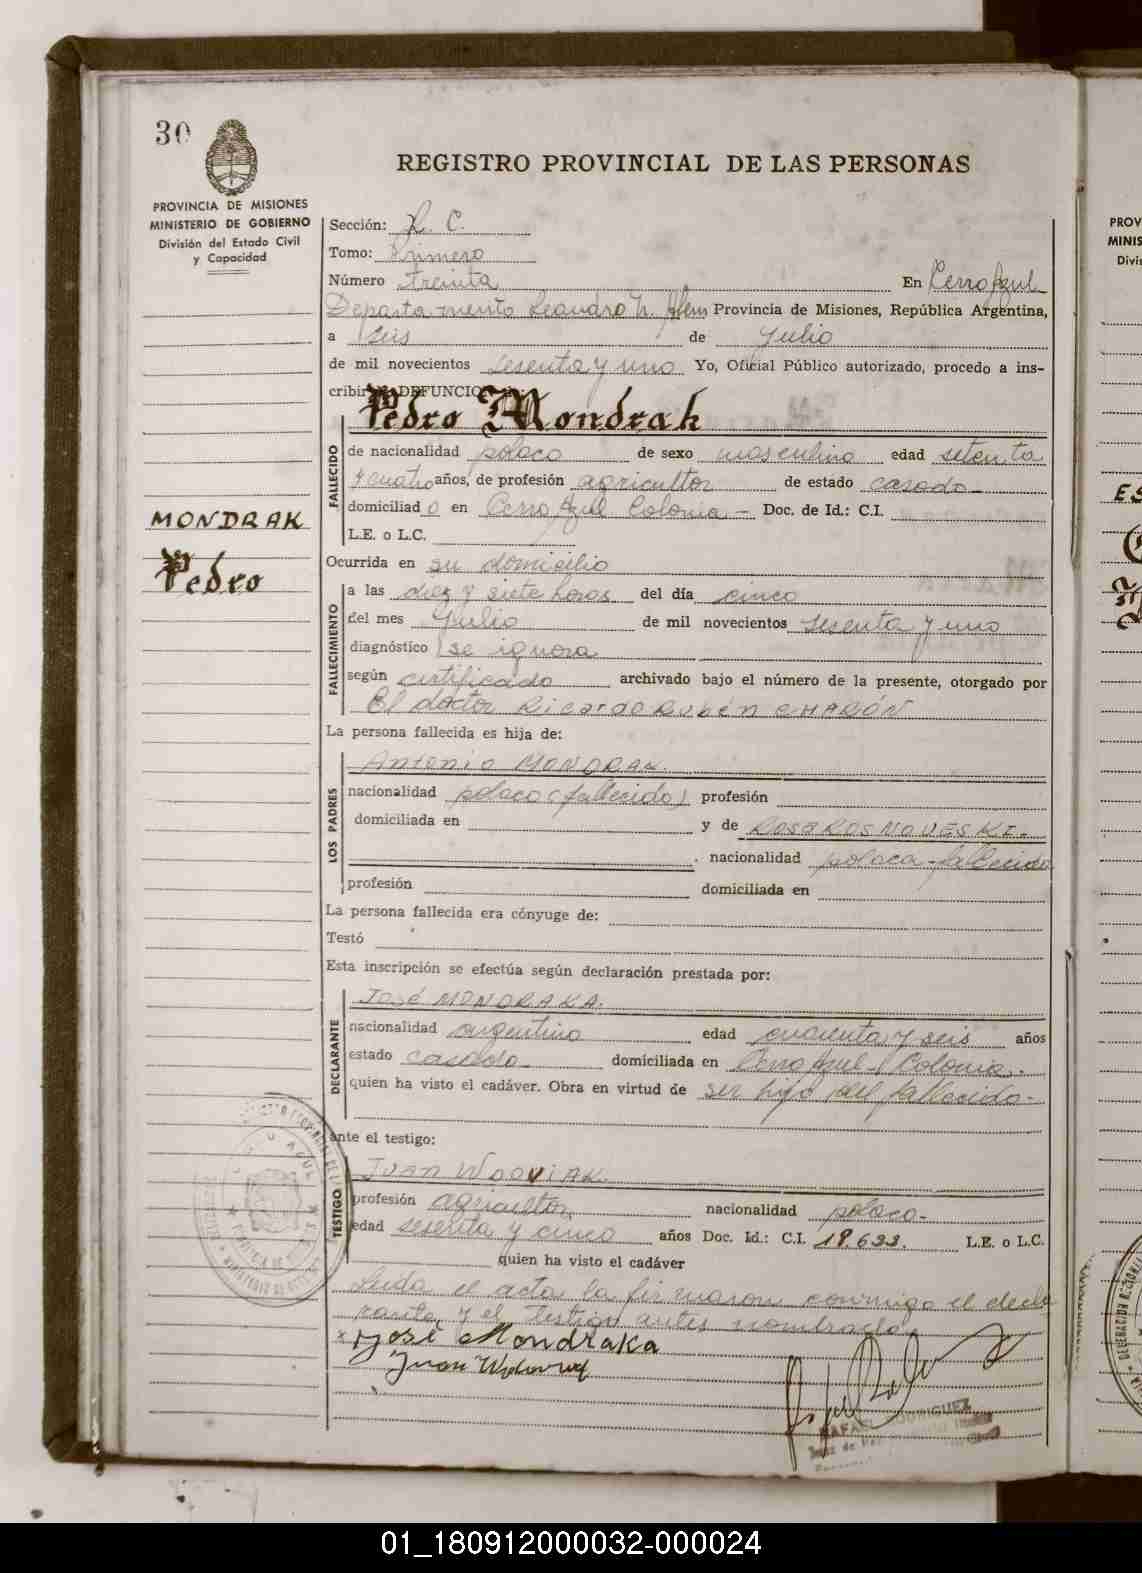 30
REGISTRO PROVINCIAL DE LAS PERSONAS
PROVINCIA DE MISIONES
MINISTERIO DE GOBIERNO
División del Estado Civil
y Capacidad
Sección: R. C.
Tomo: Primero
Número Treinta En Cerro Azul
Departamento Leandro N. Alem Provincia de Misiones, República Argentina,
a seis de Julio
de mil novecientos sesenta y uno Yo, Oficial Público autorizado, procedo a ins-
cribir DEFUNCIO
Pedro Mondrak
MONDRAK
Pedro
FALLECIDO
de nacionalidad polaco de sexo masculino edad setenta
y cuatro años, de profesión agricultor de estado casado-
domiciliado en Cerro Azul Colonia - Doc. de Id.: C.I.
L.E. o L.C.
Ocurrida en su domicilio
FALLECIMIENTO
a las diez y siete horas del día cinco
del mes Julio de mil novecientos sesenta y uno
diagnóstico se ignora
según certificado archivado bajo el número de la presente, otorgado por
El doctor Ricardo Rubén CHARÓN
La persona fallecida es hija de:
LOS PADRES
Antonio MONDRAK.
nacionalidad polaco (fallecido) profesión
domiciliada en y de ROSA ROSNOVESKI.
nacionalidad polaca - fallecida
profesión domiciliada en
La persona fallecida era cónyuge de:
Testó
Esta inscripción se efectúa según declaración prestada por:
DECLARANTE
José MONDRAKA.
nacionalidad argentino edad cuarenta y seis años
estado casado domiciliada en Cerro Azul - Colonia.
quien ha visto el cadáver. Obra en virtud de ser hijo del fallecido-
ante el testigo:
TESTIGO
Juan
profesión agricultor nacionalidad polaco-
edad sesenta y cinco años Doc. Id.: C.I. 18.633. L.E. o L.C.
quien ha visto el cadáver
Leida el acta la firmaron conmigo el decla
rante y el testigo antes nombrado
x José Mondraka
Juan
RAFAEL RODRIGUEZ
Juez de
PROV
MINIS
Divis
ES
01_180912000032-000024